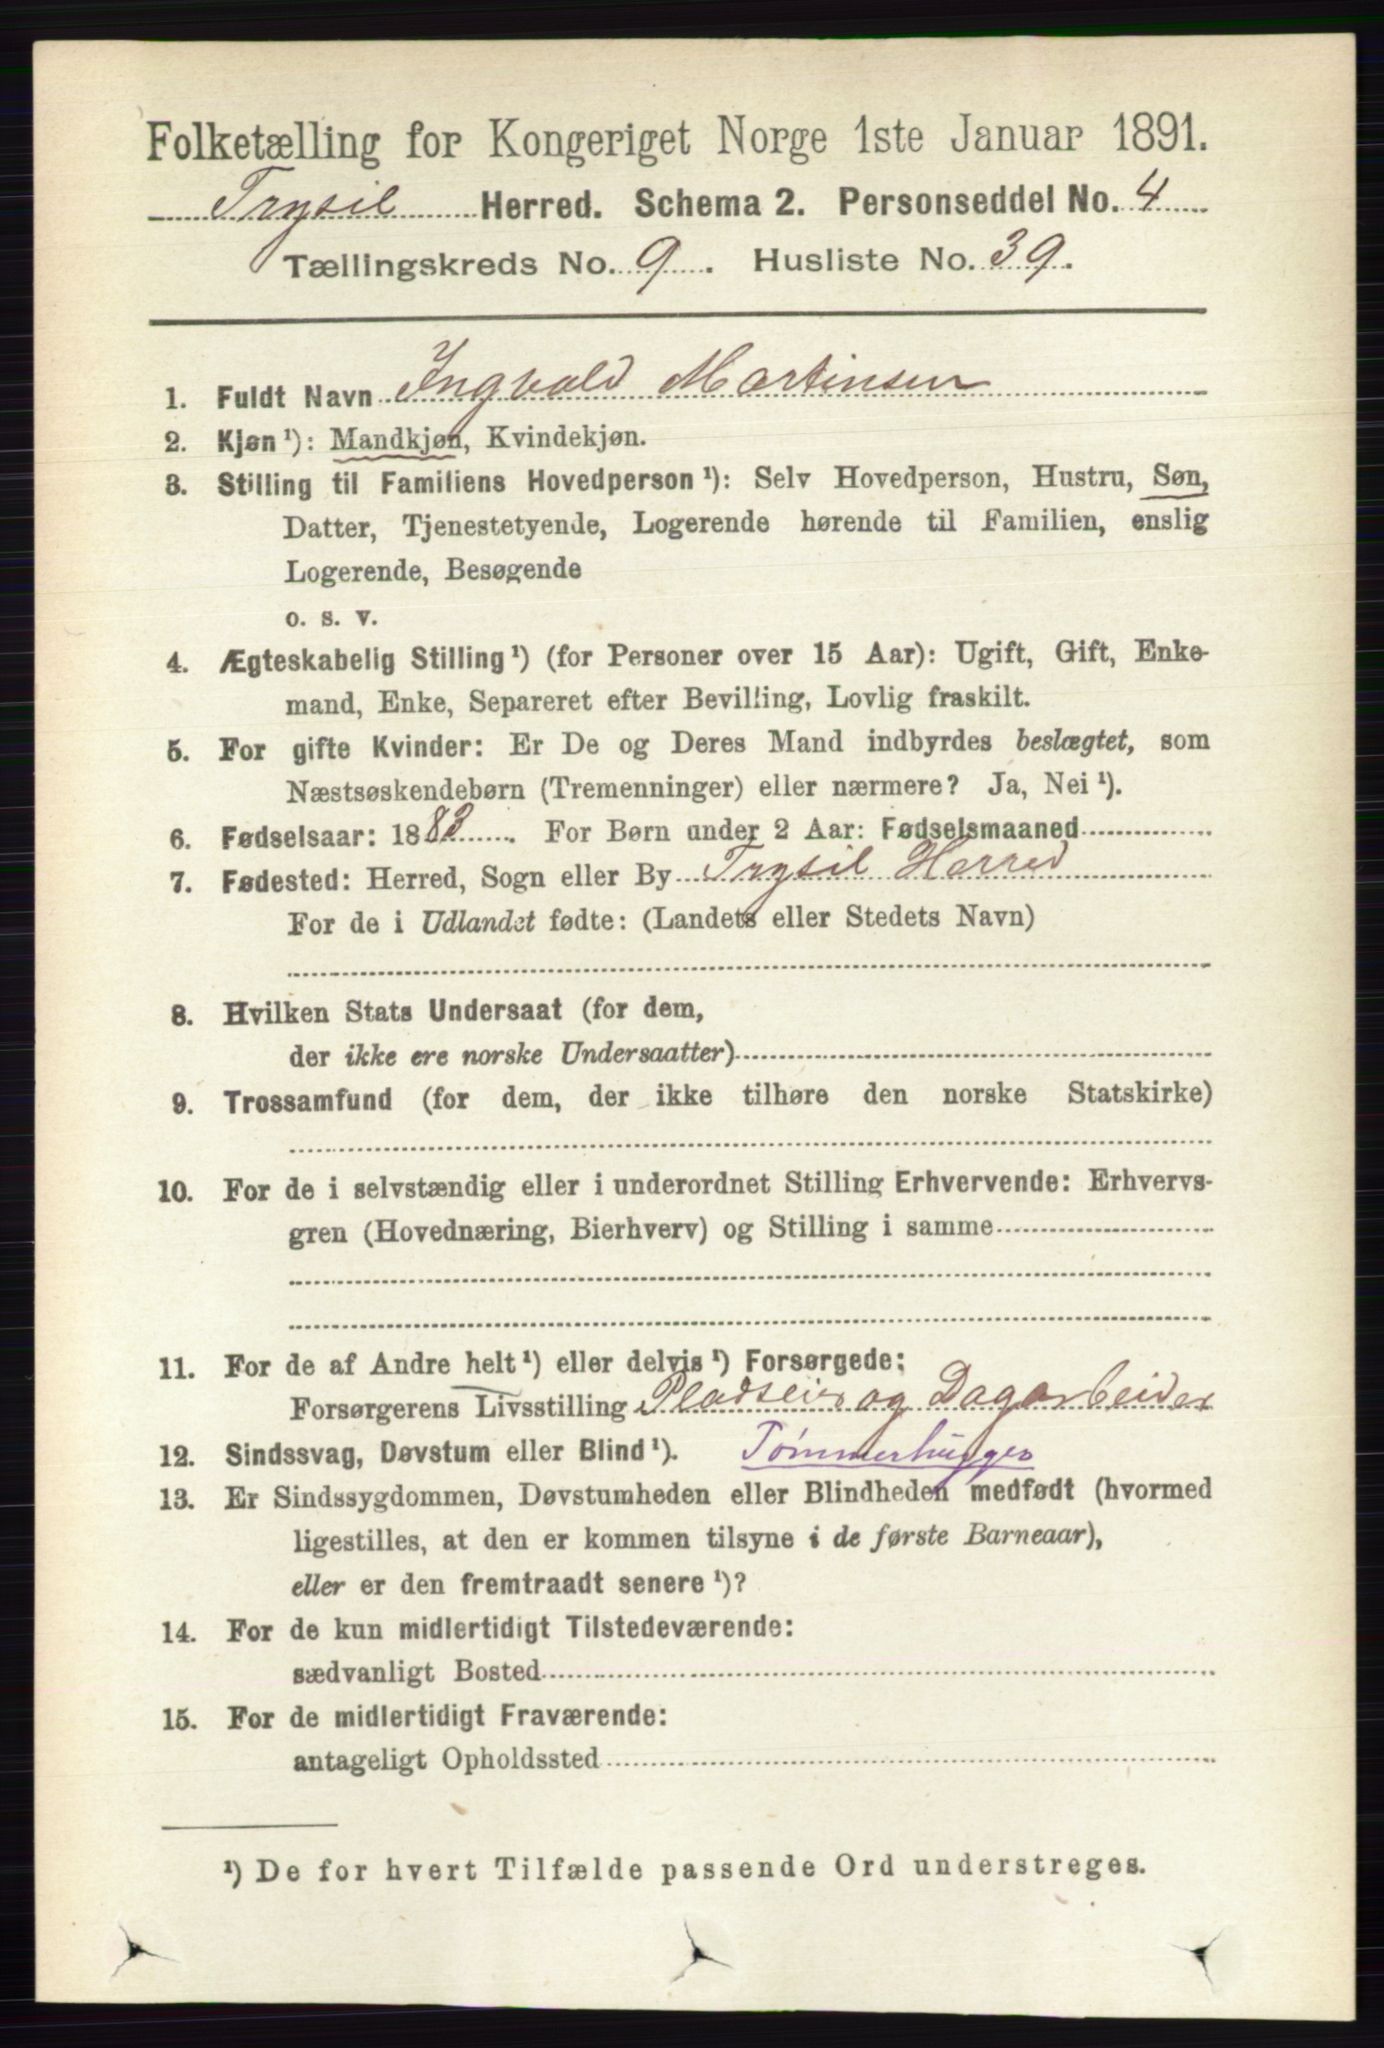 Folketælling for Kongeriget Norge 1ste Januar 1891.
Trysil Herred. Schema 2. Personseddel No. 4
Tællingskreds No. 9. Husliste No. 39.
1. Fuldt Navn Ingvald Martinsen
2. Kjøn¹): Mandkjøn, Kvindekjøn.
3. Stilling til Familiens Hovedperson¹): Selv Hovedperson, Hustru, Søn,
Datter, Tjenestetyende, Logerende hørende til Familien, enslig
Logerende, Besøgende
o. s. v.
4. Ægteskabelig Stilling¹) (for Personer over 15 Aar): Ugift, Gift, Enke-
mand, Enke, Separeret efter Bevilling, Lovlig fraskilt.
5. For gifte Kvinder: Er De og Deres Mand indbyrdes beslægtet, som
Næstsøskendebørn (Tremenninger) eller nærmere? Ja, Nei¹).
6. Fødselsaar: 1883. For Børn under 2 Aar: Fødselsmaaned
7. Fødested: Herred, Sogn eller By Trysil Herred
For de i Udlandet fødte: (Landets eller Stedets Navn)
8. Hvilken Stats Undersaat (for dem,
der ikke ere norske Undersaatter)
9. Trossamfund (for dem, der ikke tilhøre den norske Statskirke)
10. For de i selvstændig eller i underordnet Stilling Erhvervende: Erhvervs-
gren (Hovednæring, Bierhverv) og Stilling i samme
11. For de af Andre helt¹) eller delvis¹) Forsørgede:
Forsørgerens Livsstilling Pladseier og Dagarbeider
12. Sindssvag, Døvstum eller Blind¹). Tømmerhugger
13. Er Sindssygdommen, Døvstumheden eller Blindheden medfødt (hvormed
ligestilles, at den er kommen tilsyne i de første Barneaar),
eller er den fremtraadt senere¹)?
14. For de kun midlertidigt Tilstedeværende:
sædvanligt Bosted
15. For de midlertidigt Fraværende:
antageligt Opholdssted
¹) De for hvert Tilfælde passende Ord understreges.